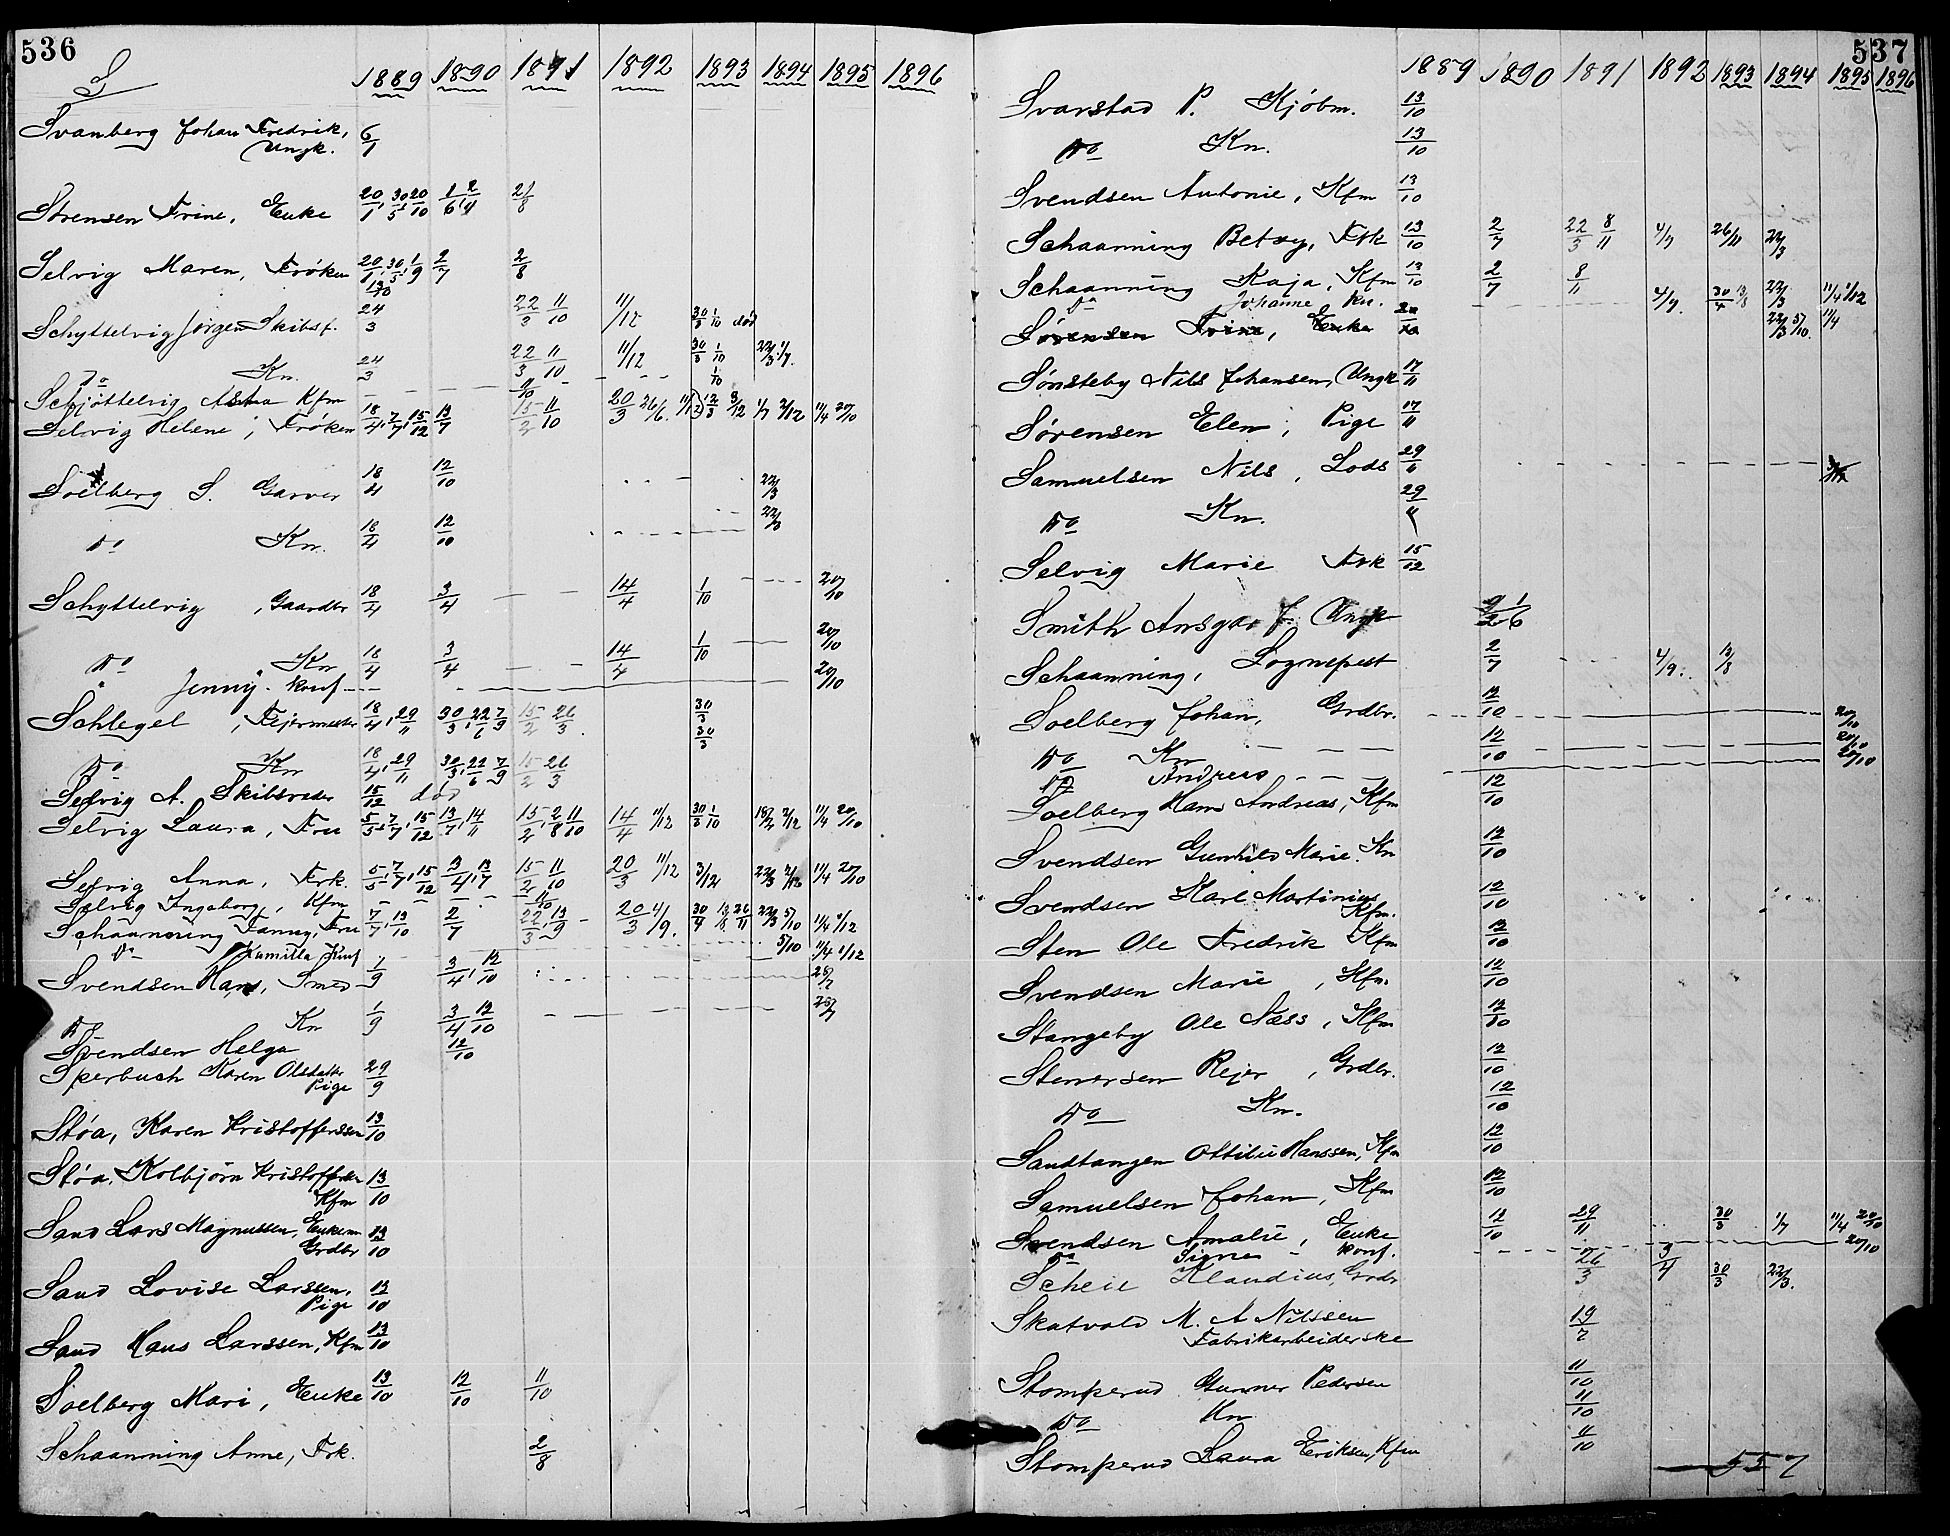 536
S 1889 1890 1891 1892 1893 1894 1895 1896
Svanberg Johan Fredrik, 6/1
Ungk.
Sørensen Trine, Enke 20/1, 30/5, 20/10 1/6, 2/4 21/8
Selvig Maren, Frøken 20/1, 30/5, 1/9 2/7 2/8
13/10
Schyttelvig Jørgen Skibsf. 24/3 22/3 11/10 11/12 30/3 1/10 død
Do Kn. 24/3 22/3 11/10 11/12 30/3 1/10 22/3 1/7.
Schjøttelvig Astra Kfm 11/10 1/10
Selvig Helene, Frøken 18/4, 7/7, 15/12 13/7 15/2 11/10 20/3 26/6. 11/12 12/3 3/12 1/7 2/12 11/4 20/10
Soelberg S. Garver 18/4 12/10 22/3
Do Kn. 18/4 12/10 22/3
Schyttelvig , Gaardbr 18/4 3/4 14/4 1/10 20/10
Do Kn 18/4 3/4 14/4 1/10 20/10
" Jenny. Konf 20/10
Schlegel , Fejermester 18/4, 29/11 30/3, 22/6 7/9 15/2 26/3 30/3
30/3
Do Kn 18/4, 29/11 30/3, 22/6 7/9 15/2 26/3
Selvig A. Skibsreder 15/12 død
Selvig Laura, Fru 5/5, 7/7, 15/12 13/7, 14/11 15/2, 2/8 11/10 14/4 11/12 30/3 1/10 18/2 2/12 11/4 20/10
Selvig Anna, Frk. 5/5, 7/7, 15/12 3/4, 13/7 15/2 11/10 20/3 11/12 3/12 22/3 2/12 11/4 20/10
Selvig Ingeborg, Kfm 11/10
Schaanning Fanny, Fru 7/7, 13/10 2/7 22/3, 13/9 20/3 4/9. 30/4 13/8 26/11 22/3 5/10 11/4 1/12
Do Kamilla Konf 5/10 11/4 1/12
Svendsen Hans, Smed 1/9 3/4, 12/10 25/7
Do Kn 1/9 3/4 12/10 25/7
Svendsen Helga 12/10
Sperbuch Karen Olsdatter 29/9
Pige
Støa, Karen Kristofferssen 13/10
Støa, Kolbjørn Kristofferssen 13/10
Kfm
Sand Lars Magnussen, Enkem 13/10
Grdbr
Sand Lovise Larssen, 13/10
Pige
Sand Hans Larssen, Kfm 13/10
Soelberg Mari, Enke 13/10 12/10 11/10
Schaanning Anne, Frk. 2/8
537
1889 1890 1891 1892 1893 1894 1895 1896
Svarstad P. Kjøbm. 13/10
Do Kn. 13/10
Svendsen Antonie, Kfm 13/10
Schaanning Betzy, Frk 13/10 2/7 22/3 8/11 4/9 26/11 22/3
Schaanning Kaja, Kfm 13/10 2/7 8/11 4/9. 30/4 13/8 22/3 11/4 1/12
Do Johanne Kn. 22/3 5/10. 11/4
Sørensen Trine, Enke 20/10
Sønsteby Nils Johansen, Ungk 17/11
Sørensen Elen, Pige 17/11
Samuelsen Nils, Lods 29/11
Do Kn. 29/11
Selvig Marie Frk 15/12
Smith Ansgar J. Ungk 2/2 1/6
Schaanning, Sognepræst 2/7 4/9. 13/8
Soelberg Johan, Grdbr. 12/10 20/10
Do Kn 12/10 20/10
Do Andreas 20/10
Soelberg Hans Andreas, Kfm 12/10
Svendsen Gunhild Marie. Kn 12/10
Svendsen Karl Martinius 12/10
Kfm.
Sten Ole Fredrik Kfm 12/10
Svendsen Marie, Kfm. 12/10
Stangeby Ole Næss, Kfm 12/10
Stenersen Rejer, Grdbr. 12/10
Do Kn. 12/10
Sandtangen Ottilie Hanssen, Kfm 12/10
Samuelsen Johan, Kfm 12/10
Svendsen Amalie, Enke 12/10 29/11 30/3 1/7 11/4 20/10
Do Signe - Konf. 20/10
Scheie Klaudius, Grdbr 26/3 3/4 30/3 22/3.
Skatvold M. A Nilssen 19/7
Fabrikarbeiderske
Stomperud Gunner Pedersen 11/10
Do Kn 11/10
Stomperud Laura Eriksen, Kfm 11/10
557